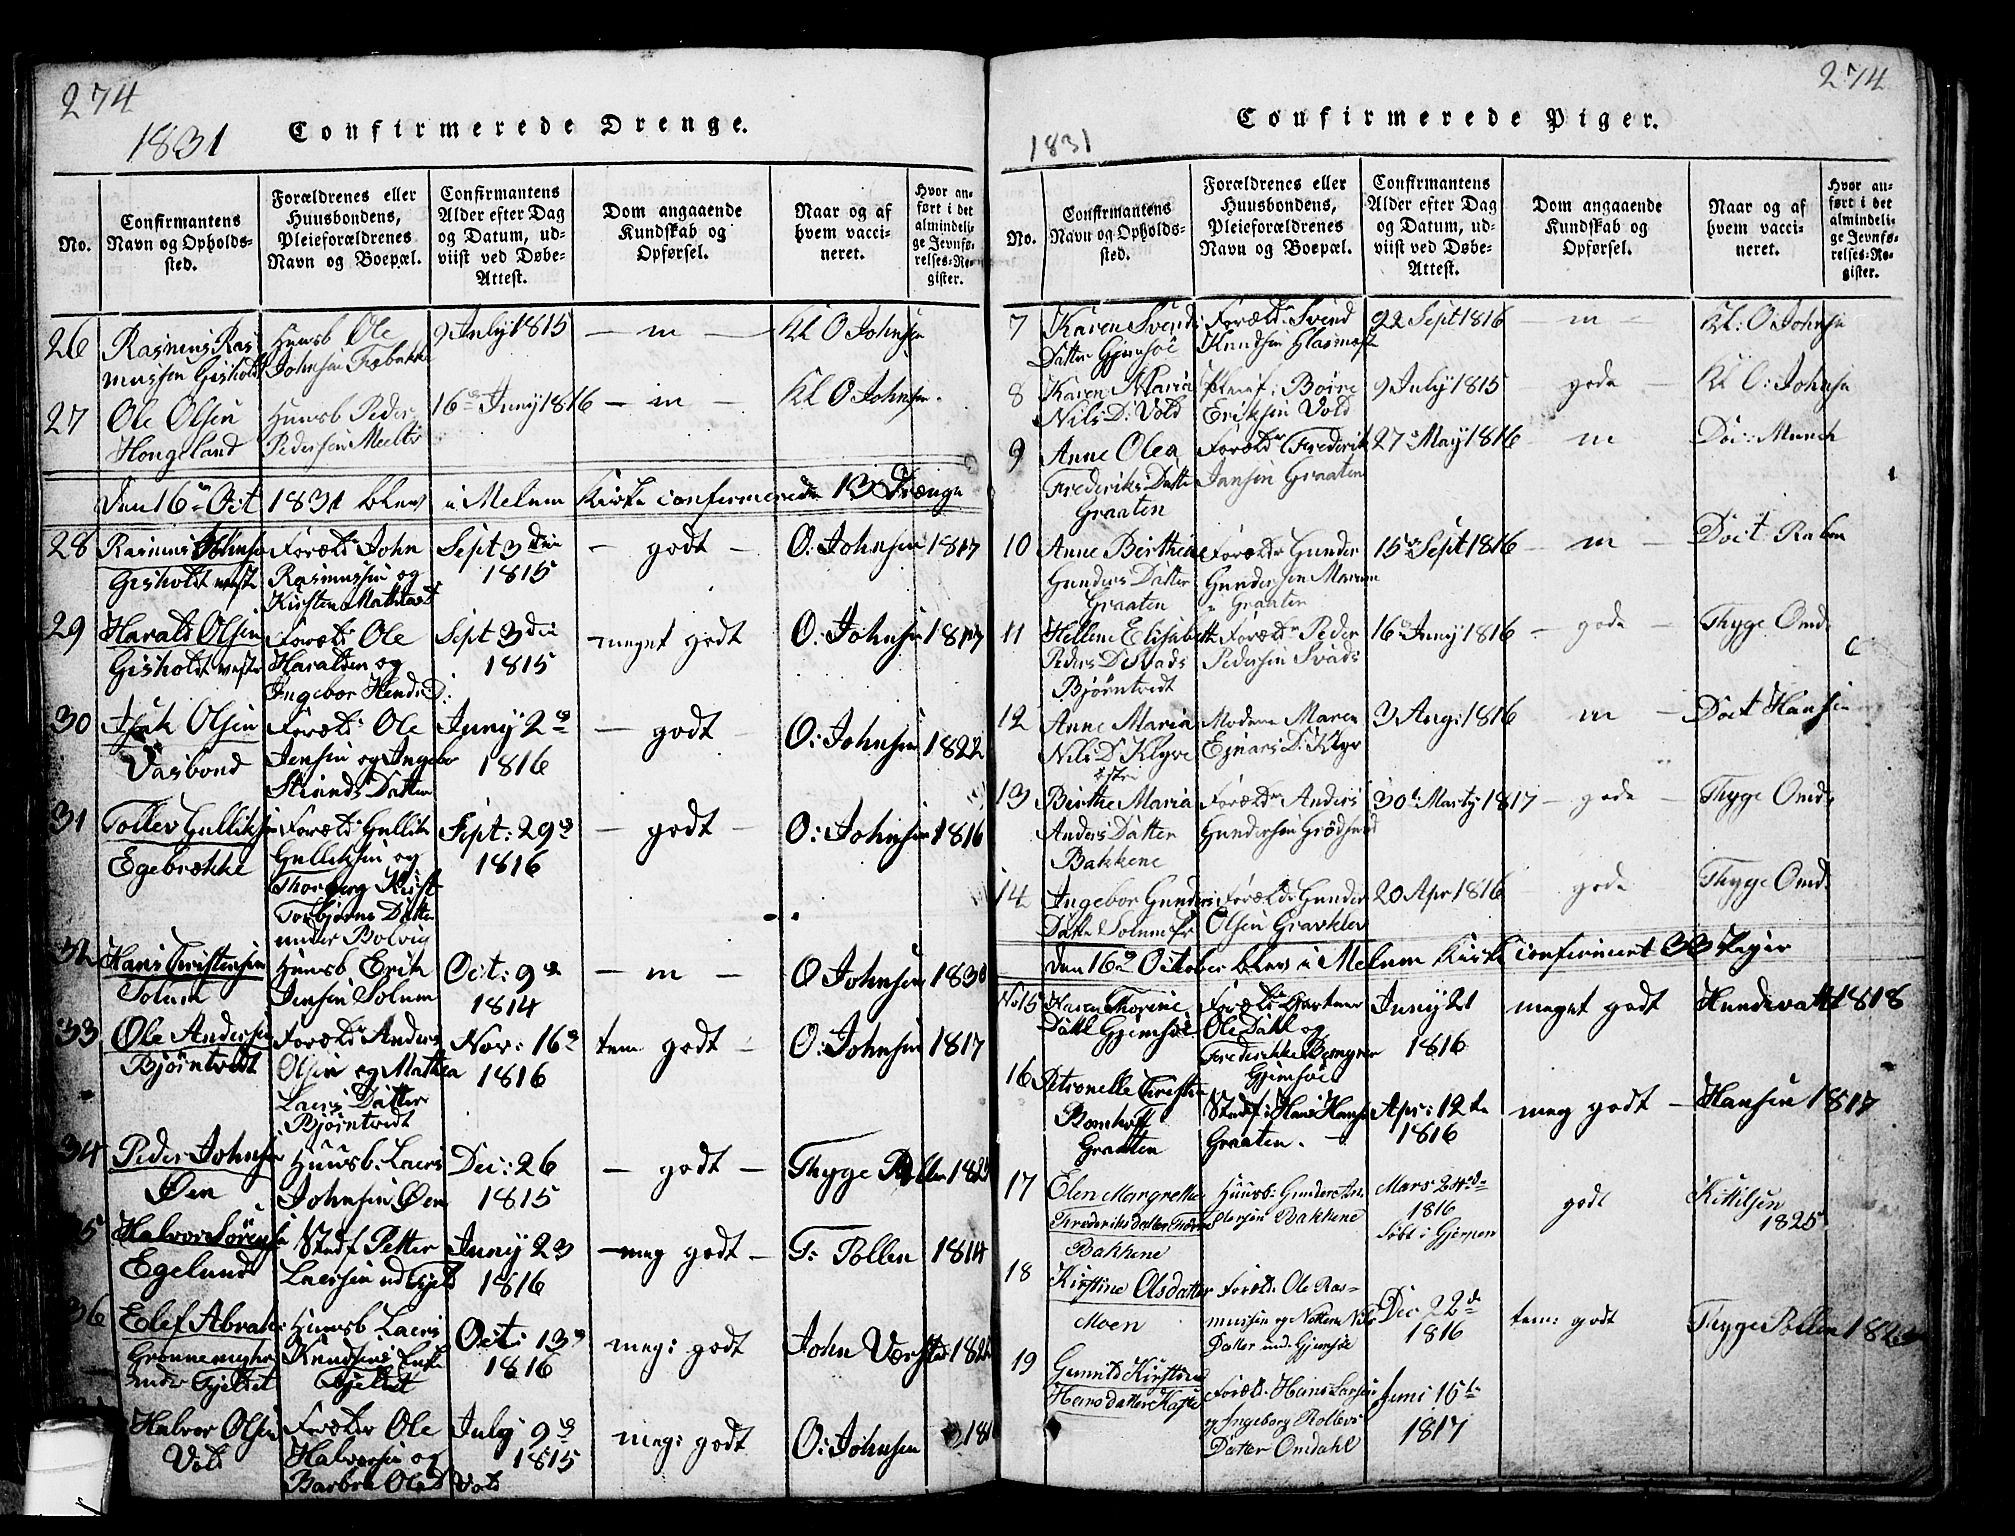 274
1831 Confirmerede Drenge.
No.
Confirmantens
Navn og Opholds-
sted.
Forældrenes eller
Huusbondens,
Pleieforældrenes
Navn og Boepæl.
Confirmantens
Alder efter Dag
og Datum, ud-
viist ved Døbe-
Attest.
Dom angaaende
Kundskab og
Opførsel.
Naar og af
hvem vacci-
neret.
Hvor an-
ført i det
almindeli-
ge Jevnfø-
relses-Re-
gister.
26 Rasmus Ras
mussen Gisholt
Huusb Ole
Johnsen
9 July 1815
— m —
Kl O Johnsen
27 Ole Olsen
Hougeland
Huusb Peder
Pedersen
16 Juny 1816
— m —
Kl O Johnsen
Den 16 Oct 1831 blev i Melum Kirke confirmerede 13 Drænge
28 Rasmus Johnsen
Gisholt
Foræld: John
Rasmussen og
Kirsten
Sept 3 die
1815
— godt —
O: Johnsen 1817
29 Harald Olsen
Gisholt
Foræld: Ole
Haralsen og
Ingebor
Sept 3 die
1815
meget godt
O: Johnsen 1817
30 Olsen
Vasbond
Foræld: Ole
Jensen og Ingebor
Datter
Juny 2
1816
— godt —
O: Johnsen 1822
31 Tollev Gulliksen
Egebrække
Foræld: Gullik
Gulliksen og
Torbjørns Datter
under Bolvig
Sept: 29
1816
— godt —
O: Johnsen 1816
32 Hans Christensen
Solum
Huusb Erik
Jensen Solum
Oct: 9
1814
— m —
O Johnsen
33 Ole Andersen
Bjørntvedt
Foræld: Anders
Olsen og Mathea
Laers Datter
Bjørntvedt
Nov: 16
1816
tem godt
O: Johnsen 1817
34 Peder Johnsen
Øen
Huusb: Laers
Johnsen Øen
Dec: 26
1815
— godt —
Thyge Pollen
35 Halvor Sørensen
Egelund
Stedf Petter
Laersen
Juny 23
1816
— meg godt —
T: Pollen 1814
36 Elef
under Fjeldet
Huusb Laers
Knudsens Enke
Fjeldet
Oct: 13
1816
meg: godt
John
Halvor Olsen
Vold
Foræld: Ole
Halvorsen og
Barbro Olsd Vold
July 9
1815
meg: godt
O: Johnsen
274
1831 Confirmerede Piger.
No.
Confirmantens
Navn og Opholds-
sted.
Forældrenes eller
Huusbondens,
Pleieforældrenes
Navn og Boepæl.
Confirmantens
Alder efter Dag
og Datum, ud-
viist ved Døbe-
Attest.
Dom angaaende
Kundskab og
Opførsel.
Naar og af
hvem vacci-
neret.
Hvor an-
ført i det
almindeli-
ge Jevnfø-
relses-Re-
gister.
7 Karen Svends
Datter Gjemsøe
Foræld: Svend
Knudsen
22 Sept 1816
— m —
Kl: O Johnsen
8 Karen Maria
Nils D: Vold
Pleief: Børre
Eriksen Vold
9 July 1815
gode —
Kl O: Johnsen
9 Anne Olea
Frederiks Datter
Graaten
Foræld: Frederik
Jansen Graaten
27 May 1816
— m
Doc: Munch
10 Anne Birthe
Gunders Datter
Graaten
Foræld: Gunder
Gundersen
Graaten
15 Sept 1816
— m —
Doct.
11 Hellene Elisabeth
Peders D Svads
Bjørntvedt
Foræld: Peder
Pedersen Svads
16 Juny 1816
— gode —
Thyge Omd:
12 Anne Maria
Nils D Klyve
østre
Moderen Maren
Ejnars D: Klyv
3 Aug: 1816
m —
Doct Hansen
13 Birthe Maria
Anders Datter
Bakkene
Foræld: Anders
Gundersen
30 Marty 1817
— gode —
Thyge Omd:
14 Ingebor Gunders
Datter
Foræld: Gunder
Olsen Gravkler
20 Apr 1816
gode
Thyge Omd.
Den 16 October blev i Melum Kirke confirmeret 33 Piger
No 15 Karen Thorine
Dahl Gjemsøe
Foræld:
Ole Dahl og
Gjemsøe
Juny 21
1816
meget godt
Hundevatt 1818
16 Petronelle
Bomhoff
Graaten
Stedf: Hans Hansen
Graaten. —
Apr: 12te
1816
meg godt —
Hansen 1817
17 Elen Margrethe
Frederiksdatter
Bakkene
Huusb: Gunder An
dersen Bakkene
Mars 24de
1816
Døbt i Gjerpen
godt
Kittilsen
1825
18 Kirstine Olsdatter
Moen
Foræld: Ole Ras-
mussen og
Datter und: Gjemsøe
Dec 22d
1816
tem: godt
Thyge Pollen
19 Gunnild Kirstine
Hansdatter
Foræld: Hans Larsen
og Ingeborg Rollevs
Datter Omdahl
Juni 15te
1817